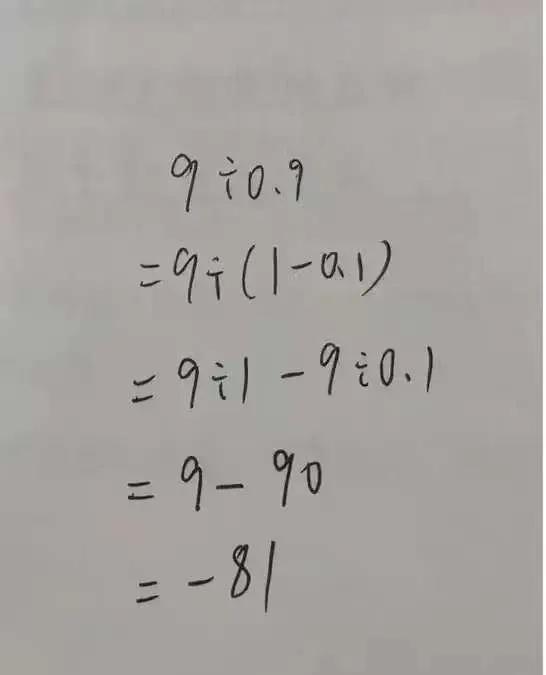 9÷0.9
=9÷(1-0.1)
=9÷1-9÷0.1
=9-90
=-81